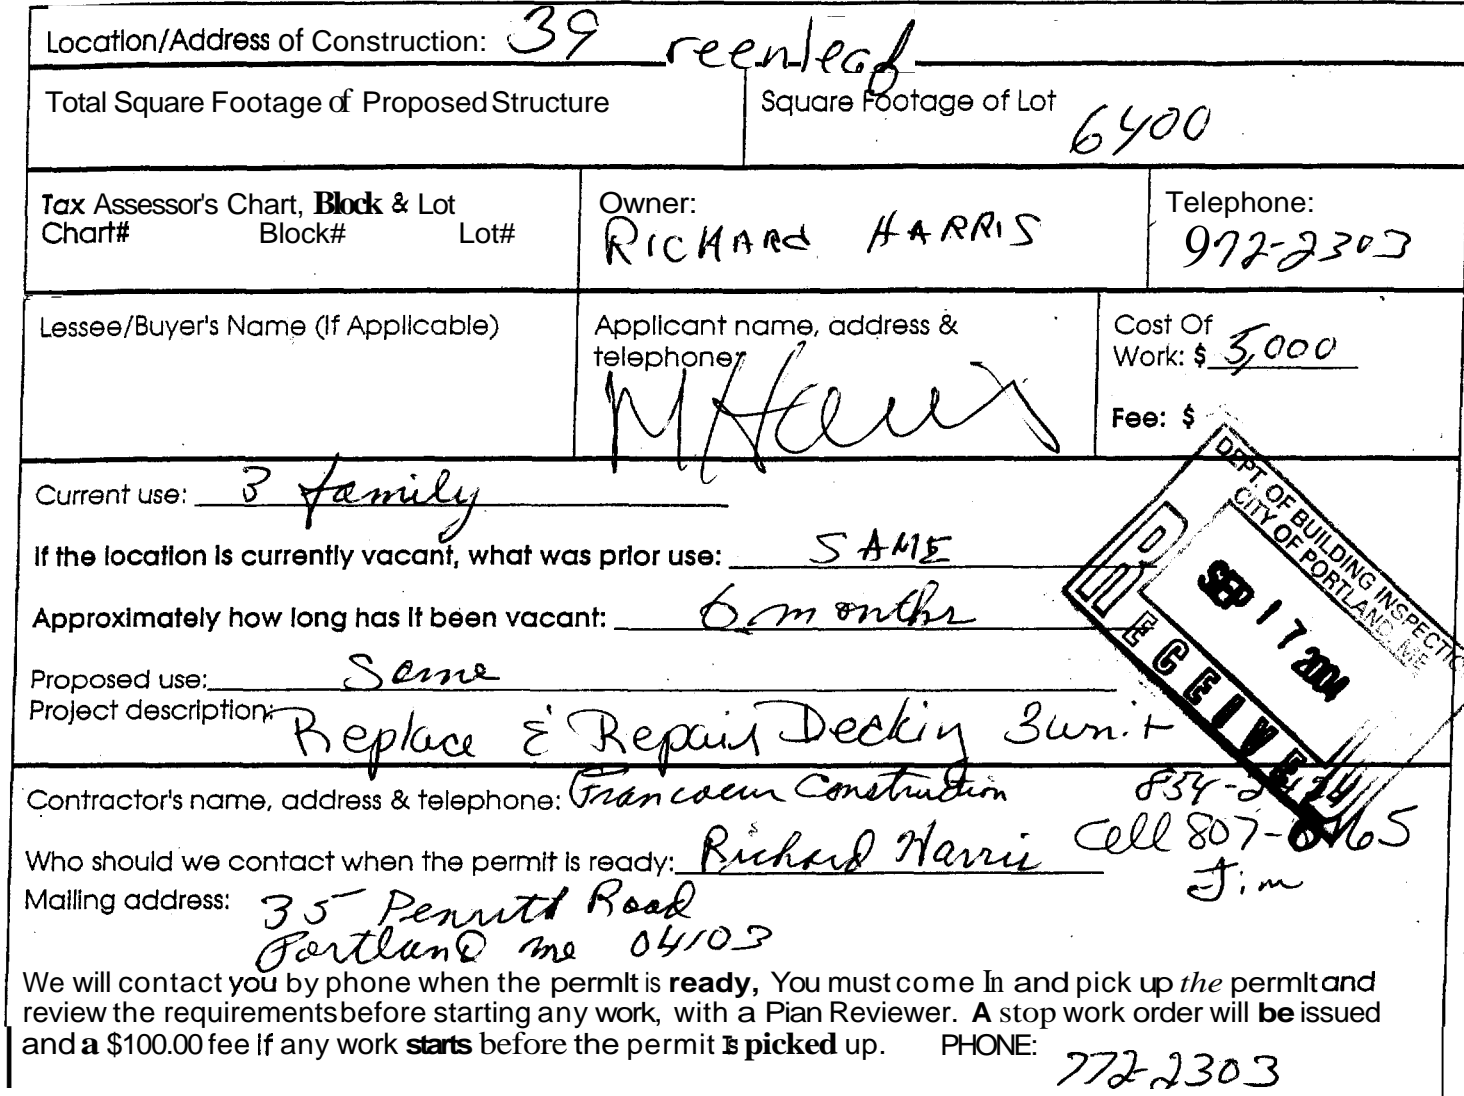 Location/Address of Construction: 39 reenleaf
Total Square Footage of Proposed Structure
Square Footage of Lot
6400
Tax Assessor's Chart, Block & Lot
Chart# Block# Lot#
Owner:
RICHARd HARRIS
Telephone:
972-2303
Lessee/Buyer's Name (If Applicable)
Applicant name, address &
telephone:
Cost Of
Work: $ 5,000
Fee: $
Current use: 3 family
If the location is currently vacant, what was prior use: SAME
Approximately how long has it been vacant: 6 months
Proposed use: Same
Project description: Replace & Repair Deckin 3 unit
DEPT. OF BUILDING INSPECTIO
CITY OF PORTLAND, ME
SEP 17 2004
RECEIVED
Contractor's name, address & telephone: Francoeur Construction
Cell 807-
Who should we contact when the permit is ready: Richard Harris
Jim
Mailing address: 35 Road
Portland me 04103
We will contact you by phone when the permit is ready, You must come In and pick up the permit and
review the requirements before starting any work, with a Pian Reviewer. A stop work order will be issued
and a $100.00 fee if any work starts before the permit is picked up. PHONE:
772-2303